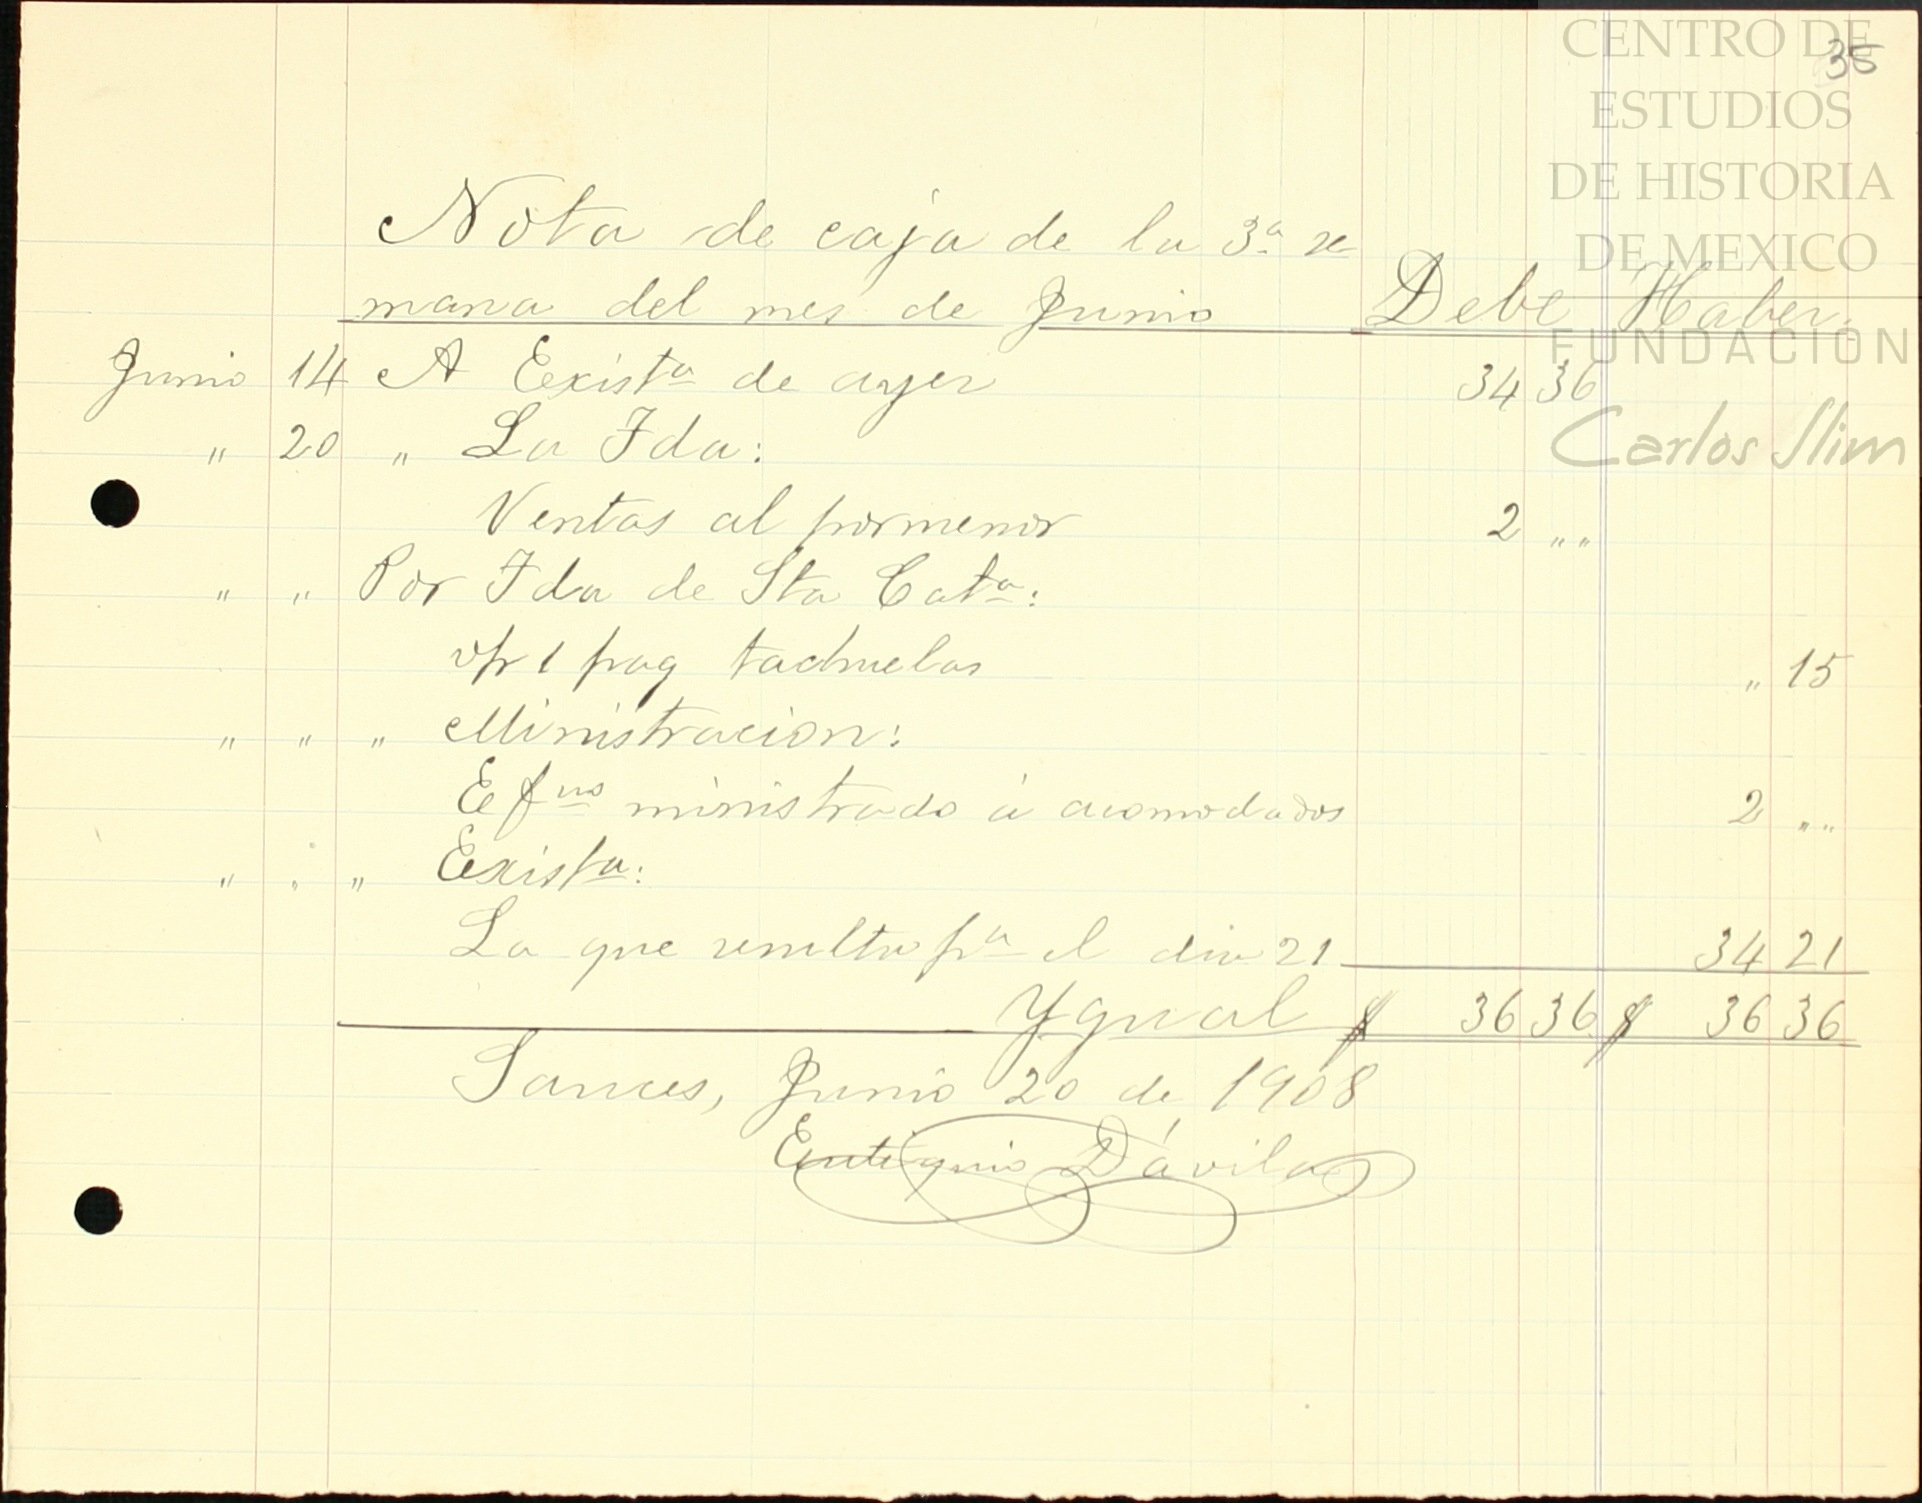 35
CENTRO DE
ESTUDIOS
DE HISTORIA
DE MEXICO
FUNDACIÓN
Carlos Slim
Nota de caja de la 3ª se
mana del mes de Junio Debe Haber.
Junio 14 A Existª de ayer 34 36
" 20 " La Fda:
Ventas al pormenor 2 ""
" " Por Fda de Sta Catª:
1 paq tachuelas " 15
" " " Ministracion:
Efvo ministrado á acomodados 2 ""
" " " Existª:
La que resulta pª el dia 21 34 21
Ygual $ 36 36 $ 36 36
Sauces, Junio 20 de 1908
Eutiquio Dávila